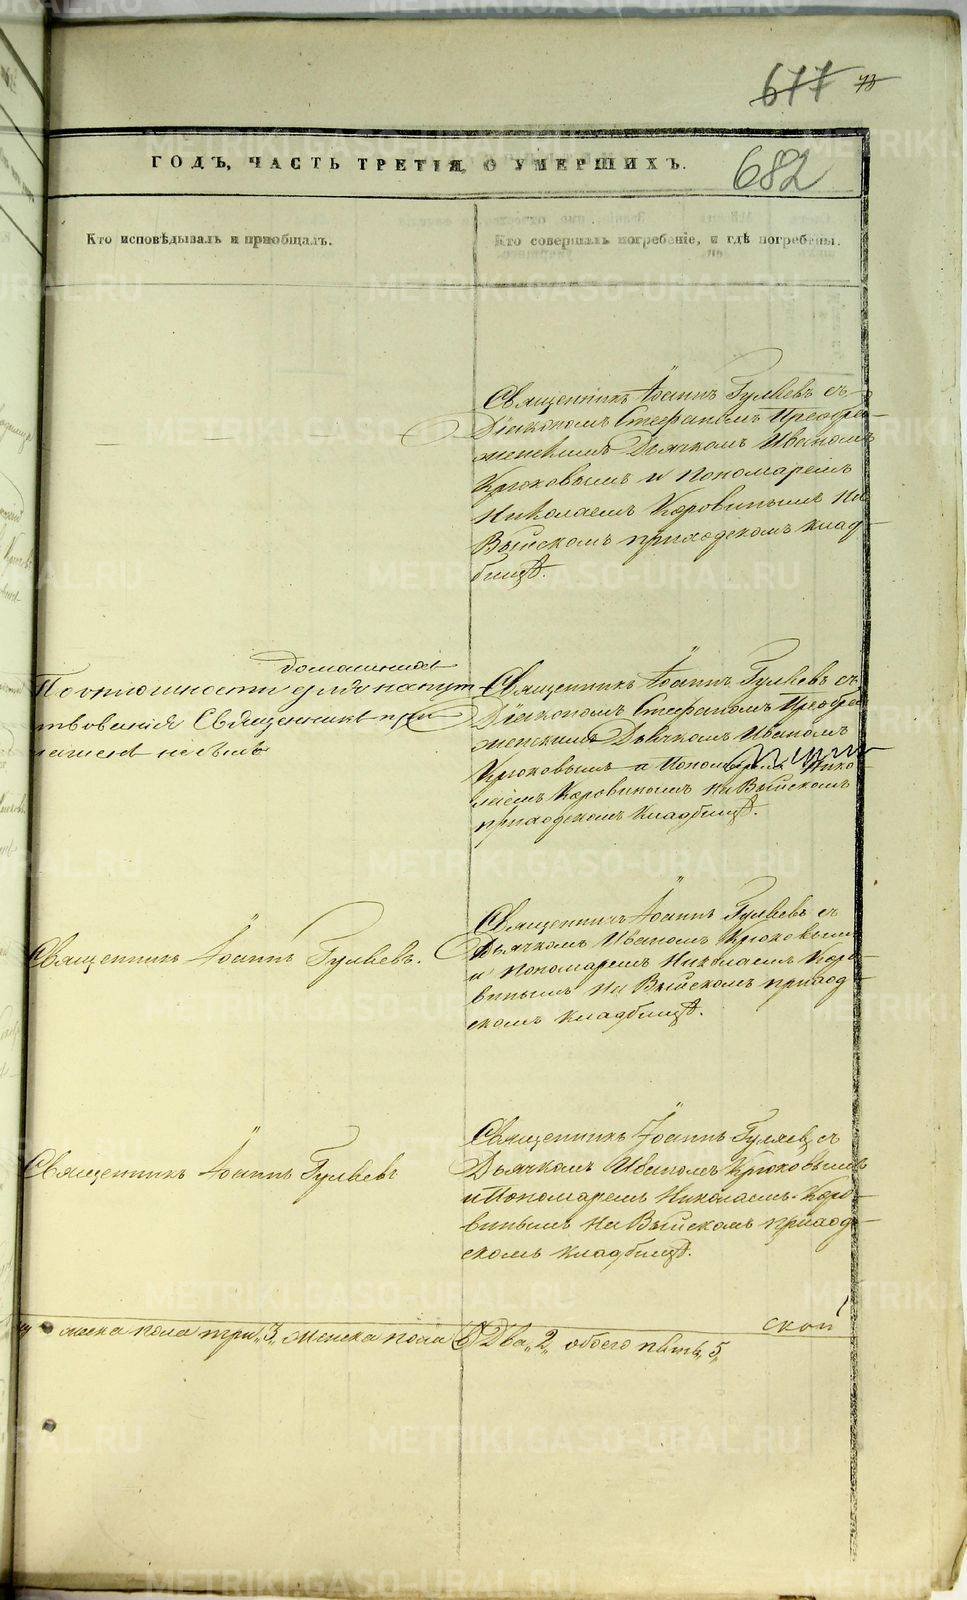 677 73
ГОДЪ, ЧАСТЬ ТРЕТІЯ, О УМЕРШИХЪ.
682
Кто исповѣдывалъ и пріобщалъ.
Кто совершалъ погребеніе, и гдѣ погребены.
Священникъ Іоаннъ Гуляевъ съ
Діакономъ Стефаномъ Преобра-
женскимъ Дьячкомъ Иваномъ
Крюковымъ и пономаремъ
Николаемъ Коровинымъ на
Выйскомъ приходскомъ клад-
бищѣ.
домашними
По оплошности для напут-
ствованія Священникъ при-
глашенъ не былъ
Священникъ Іоаннъ Гуляевъ съ
Діакономъ Стефаномъ Преобра-
женскимъ Дьячкомъ Иваномъ
Крюковымъ и Пономаремъ Нико-
лаемъ Коровинымъ на Выйскомъ
приходскомъ кладбищѣ.
Священникъ Іоаннъ Гуляевъ.
Священникъ Іоаннъ Гуляевъ съ
Дьячкомъ Иваномъ Крюковымъ
и пономаремъ Николаемъ Коро-
винымъ на Выйскомъ приход-
скомъ кладбищѣ.
Священникъ Іоаннъ Гуляевъ
Священникъ Іоаннъ Гуляевъ съ
Дьячкомъ Иваномъ Крюковымъ
и Пономаремъ Николаемъ Коро-
винымъ на Выйскомъ приход-
скомъ кладбищѣ.
ской
мужеска пола три „3„ женска пола Два „2„ обоего пять „5„
METRIKI.GASO-URAL.RU